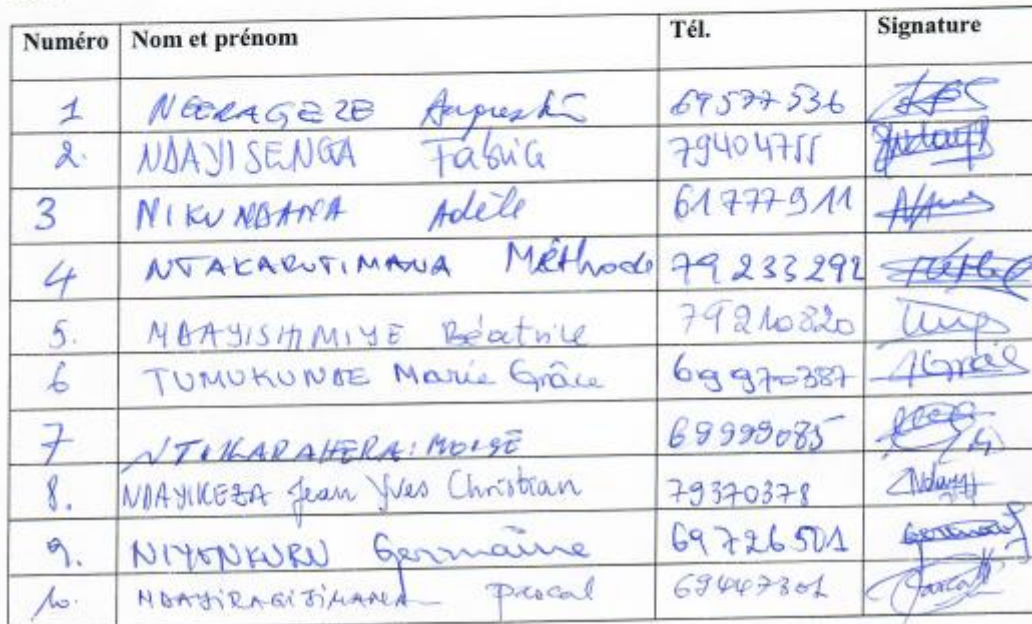 Numéro Nom et prénom Tél. Signature
1 NEERAGEZE 69577536
2. NDAYISENGA Fabrice 79404755
3 NIKUNDANA Adèle 61777911
4 NTAKARUTIMANA Méthode 79233292
5. NDAYISHIMIYE Béatrice 79210820
6 TUMUKUNDE Marie Grâce 69970387
7 NTAKARAHERA: MOISE 69999085
8. NDAYIKEZA Jean Yves Christian 79370378
9. NIYONKURU Germaine 69726501
10. NDAYIRAGIJIMANA Pascal 69447301